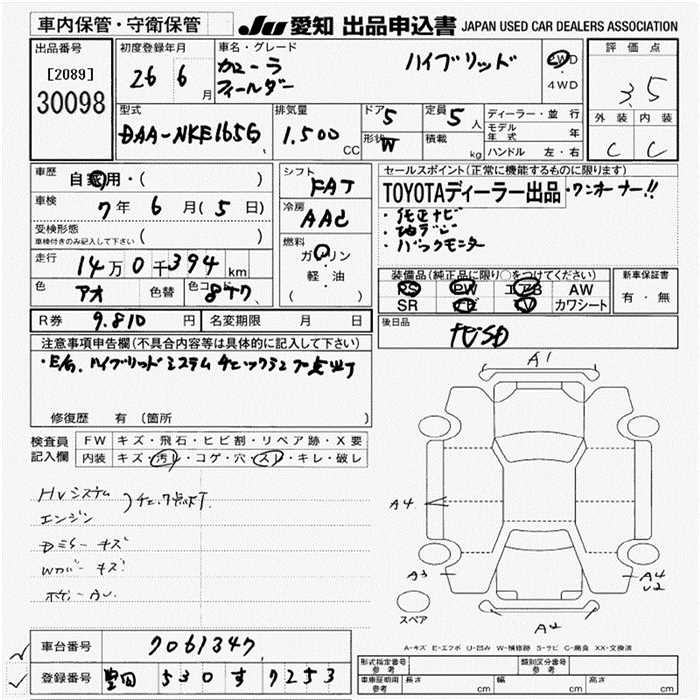 車内保管・守衛保管
JU 愛知 出品申込書 JAPAN USED CAR DEALERS ASSOCIATION
出品番号
[2089]
30098
初度登録年月
26 6月
車名・グレード
カローラ
フィールダー
ハイブリッド
2WD
・
4WD
評価点
3.5
外装 内装
C C
型式
DAA-NKE165G
排気量
1.500 CC
ドア 5
形状 W
定員 5人
積載 kg
ディーラー・並行
モデル年式 年
ハンドル 左・右
車歴
自家用・( )
車検
7年 6月(5日)
受検形態
車検付きのみ記入して下さい ( )
走行
14万0千394km
色
アオ
色替
色コード
8T7
シフト
FAT
冷房
AAC
燃料
ガソリン
・
軽・油
( )
セールスポイント(正常に機能するものに限ります)
TOYOTAディーラー出品・ワンオーナー!!
・純正ナビ
・地デジ
・バックモニター
装備品(純正品に限り○をつけてください)
PS PW エアB AW
SR ナビ TV カワシート
新車保証書
有・無
後日品
R券 9.810円
名変期限 月 日
注意事項申告欄(不具合内容等は具体的に記入して下さい)
・E/G. ハイブリッドシステムチェックランプ点灯
修復歴 有(箇所
検査員
記入欄
FW キズ・飛石・ヒビ割・リペア跡・X要
内装 キズ・汚レ・コゲ・穴・スレ・キレ・破レ
HVシステム
エンジン
チェック点灯
Dミラーキズ
Wカバーキズ
A1
A4
A3
A4
U2
A2
スペア
A-キズ E-エクボ U-凹み W-補修跡 S-サビ C-腐食 XX-交換済
車台番号 7061347
登録番号 豊田 530 す 7253
形式指定番号
参考
類別区分番号
参考
車庫証明用
参考
長さ cm
幅 cm
高さ cm